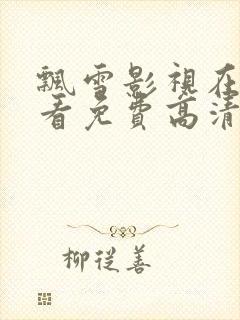 飄雪影視在
看免費高清
柳從善